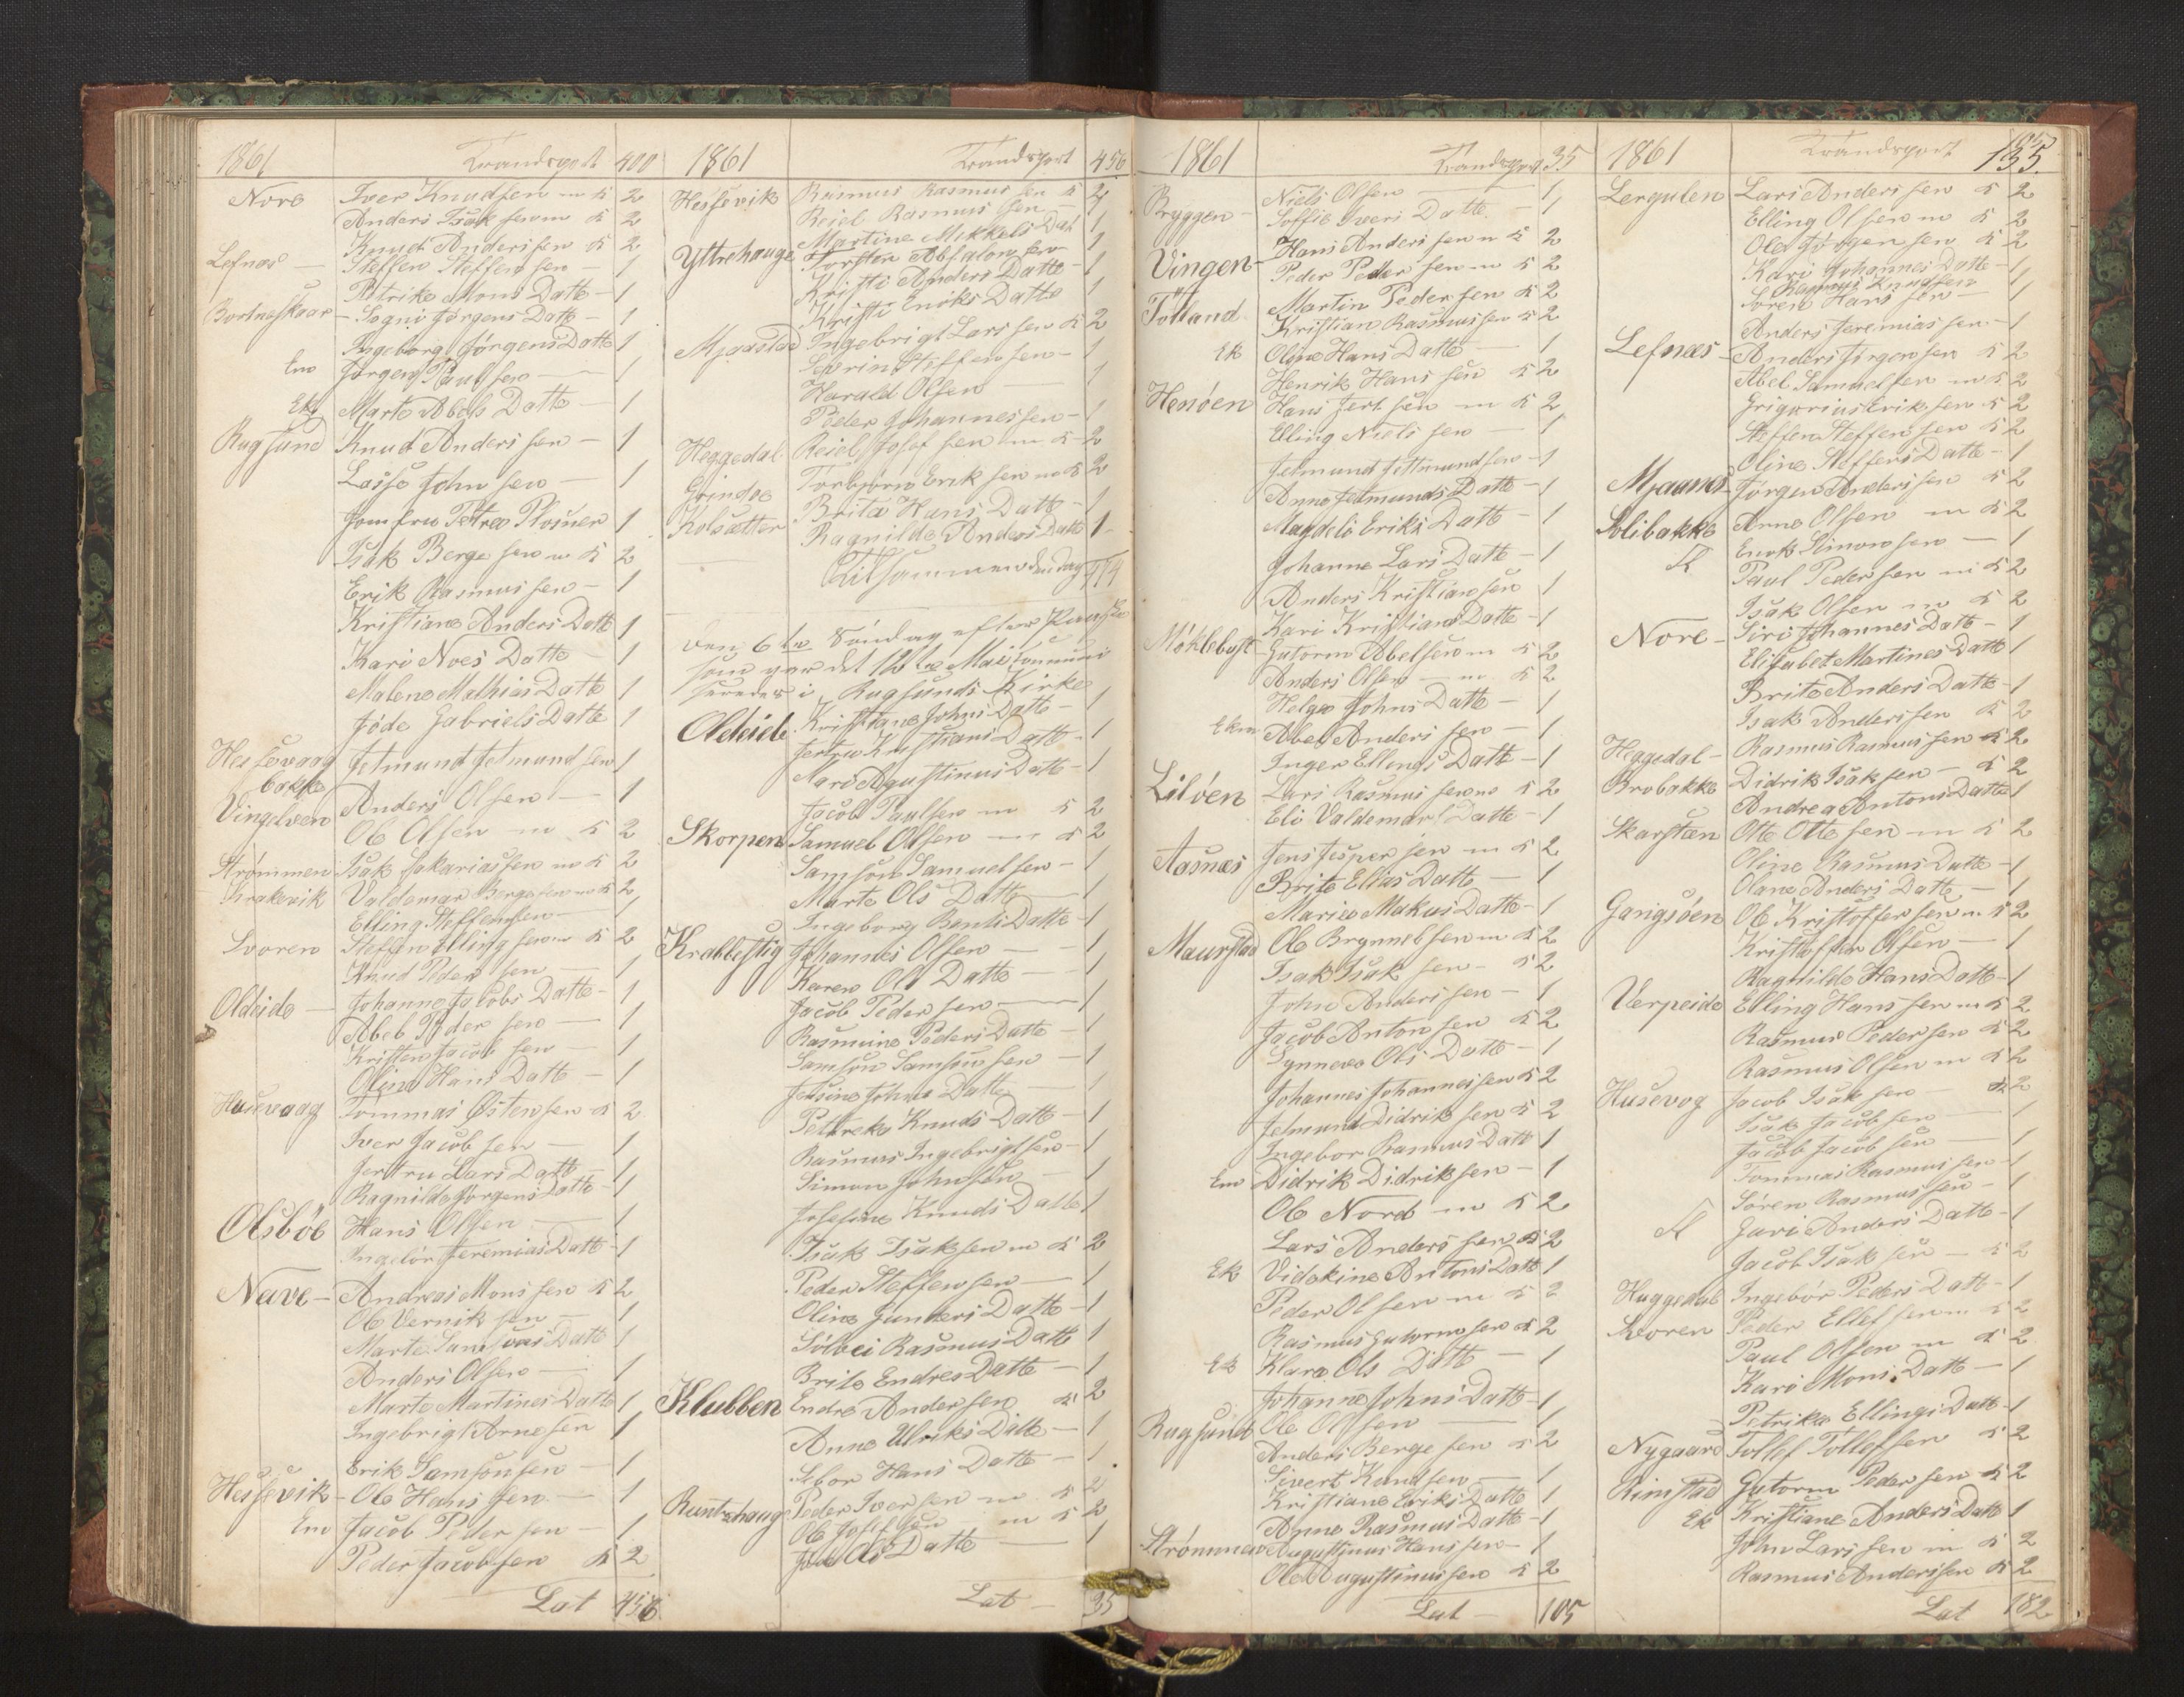 1861 Trandsport 400
Nore Iver Knudsen m K 2
Anders Isaksen m K 2
Knud Andersen K 2
Lefnæs Steffen Steffensen 1
Petrike Mons Datte 1
Bortneskaar Sogni Jørgens Datte 1
Ingeborg Jørgens Datte 1
Em Jørgen Paulsen 1
Ek Marte Abels Datte 1
Rugsund Knud Andersen 1
Lasse Johnsen 1
Jomfru Petrea 1
Isak Bergesen m K 2
Erik Rasmussen 1
Kristiane Anders Datte 1
Kari Noes Datte 1
Malene Mathias Datte 1
Jöde Gabriels Datte 1
Hessevaag Jetmund Jetmundsen 1
bakke
Vingelven Anders Olsen 1
Ole Olsen m K 2
Strømmen Isak Sakariassen m K 2
Krakevik Valdemar Bergesen m K 2
Elling Steffensen 1
Svoren Steffen Ellingsen m K 2
Knud Pedersen 1
Oldeide Johanne Jacobs Datte 1
Abel Pedersen 1
Kristen Jacobsen 1
Oline Hans Datte 1
Husevaag Tommas Østensen K 2
Iver Jacobsen 1
Jertru Lars Datte 1
Ragnilde Jørgens Datte 1
Olsböe Hans Olsen 1
Ingebör Jeremias Datte 1
Nave Andreas Monssen K 2
Ole Verniksen 1
Marte Samsons Datte 1
Anders Olsen 1
Marte Martines Datte 1
Ingebrigt Arnesen 1
Erik Samsonsen 1
Hessevik Ole Hanssen 1
Em Jacob Pedersen 1
Peder Jacobsen K 2
Lat 456
1861 Trandsport 456
Hessevik Rasmus Rasmussen K 2
Reiel Rasmussen 1
Martine Mikkels Dat 1
Yttrehauge Torsten Absalonsen 1
Kristi Anders Datte 1
Kristi Enoks Datte 1
Mjaastad Ingebrigt Larssen K 2
Severin Steffensen 1
Harald Olsen 1
Peder Johannessen 1
Heggedal Reiel Josefsen m K 2
Grindøe Torbjörn Eriksen m K 2
Kolsætter Brita Hans Datte 1
Ragnilde Anders Datte 1
Tilsammen den dag 474
Den 6te Söndag efter Paaske
som var det 12te Mai Communi
serede i Rugsunds Kirke
Oldeide Kristiane Johns Datte 1
Jertru Kristians Datte 1
Mari Agustinus Datte 1
Jacob Paulsen m K 2
Skorpen Samuel Olsen m K 2
Samson Samuelsen 1
Marte Ols Datte 1
Ingeborg Bents Datte 1
Krabbestig Johannes Olsen 1
Karen Ols Datte 1
Jacob Pedersen 1
Rasmine Peders Datte 1
Samson Samsonsen 1
Jensine Johns Datte 1
Petreke Knuds Datte 1
Rasmus Ingebrigtsen 1
Simon Johnsen 1
Josefine Knuds Datte 1
Isak Isaksen m K 2
Peder Steffensen 1
Oline Gunders Datte 1
Sölvei Rasmus Datte 1
Brite Endres Datte 1
Klubben Endre Andersen K 2
Anne Ulriks Datte 1
Hans Datte 1
Runtehaug Peder Iversen m K 2
Ole Josefsen m K 2
Ols Datte 1
Lat 35
1861 Trandsport 35
Bryggen Niels Olsen 1
Soffie Iveri Datte 1
Vingen Hans Anderssen m K 2
Peder Pedersen m K 2
Totland Martin Pedersen K 2
Kristian Rasmussen K 2
Ek Oline Hans Datte 1
Henrik Hanssen K 2
Henöen Hans Jertsen m K 2
Elling Nielssen 1
Jetmund Jetmundsen 1
Anne Jetmunds Datte 1
Magdele Eriks Datte 1
Johanne Lars Datte 1
Anders Kristiansen 1
Kari Kristians Datte 1
Möklebust Gutorm Abelsen m K 2
Anders Olsen m K 2
Helge Johns Datte 1
Ekm Abel Anderssen 1
Inger Ellings Datte 1
Lilöen Lars Rasmussen m K 2
Eli Valdemar Datte 1
Aasnæs Jens Jespersen m K 2
Brite Elias Datte 1
Marie Makus Datte 1
Maurstad Ole Brynnelsen m K 2
Isak Isaksen K 2
John Anderssen 1
Jacob Antonsen K 2
Synneve Ols Datte 1
Johannes Johannessen K 2
Jetmund Didriksen K 2
Ingebor Rasmus Datt 1
Em Didrik Didriksen 1
Ole Nord m K 2
Lars Anderssen K 2
Ek Vidokine Antons Datt 1
Peder Olsen m K 2
Rasmus Gutormsen K 2
Ek Klare Ols Datte 1
Johanne Johns Datte 1
Rugsund Ole Olsen 1
Anders Bergesen K 2
Sivert Knudsen 1
Kristiane Eriks Datte 1
Anne Rasmus Datte 1
Strömmen Augustinus Hanssen 1
Ole Augustinussen K 2
Lat 105
1861 Trandsport 105
135.
Lergulen Lars Anderssen K 2
Elling Olsen m K 2
Ole Jörgensen K 2
Kari Johannes Datte 1
Rasmus Knudsen 1
Sören Hanssen 1
Anders Jeremiassen 1
Lefnæs Anders Jörgensen K 2
Abel Samuelsen m K 2
Grigorius Eriksen K 2
Steffen Steffensen K 2
Oline Steffens Datte 1
Mjaanæs Jörgen Anderssen K 2
Solibakke Arne Olsen m K 2
Enok Simonsen 1
Paul Pedersen m K 2
Isak Olsen m K 2
Nore Siri Johannes Datte 1
Elisabet Martines Datte 1
Brite Anders Datte 1
Isak Anderssen K 2
Heggedal Rasmus Rasmussen K 2
Brobakke Didrik Isaksen K 2
Andrea Antons Datte 1
Skarstæn Otte Ottesen m K 2
Oline Rasmus Datte 1
Olane Anders Datte 1
Gangsöen Ole Kristoffersen m K 2
Kristoffer Olsen 1
Ragnilde Hans Datte 1
Verpeide Elling Hanssen m K 2
Rasmus Pedersen K 2
Rasmus Olsen m K 2
Husevog Jacob Isaksen K 2
Isak Jacobsen 1
Jacob Jacobsen 1
Tommas Rasmussen 1
Sören Rasmussen 1
Guri Anders Datte 1
Jacob Isaksen K 2
Huggedal Ingebör Peders Datt 1
Svoren Peder Ellefsen m K 2
Paul Olsen m K 2
Kari Mons Datte 1
Petrike Ellings Datte 1
Nygaard Tollef Tollefsen K 2
Rimstad Gutorm Pedersen K 2
Ek Kristiane Anders Datte 1
John Larssen m K 2
Rasmus Anderssen K 2
Lat 182